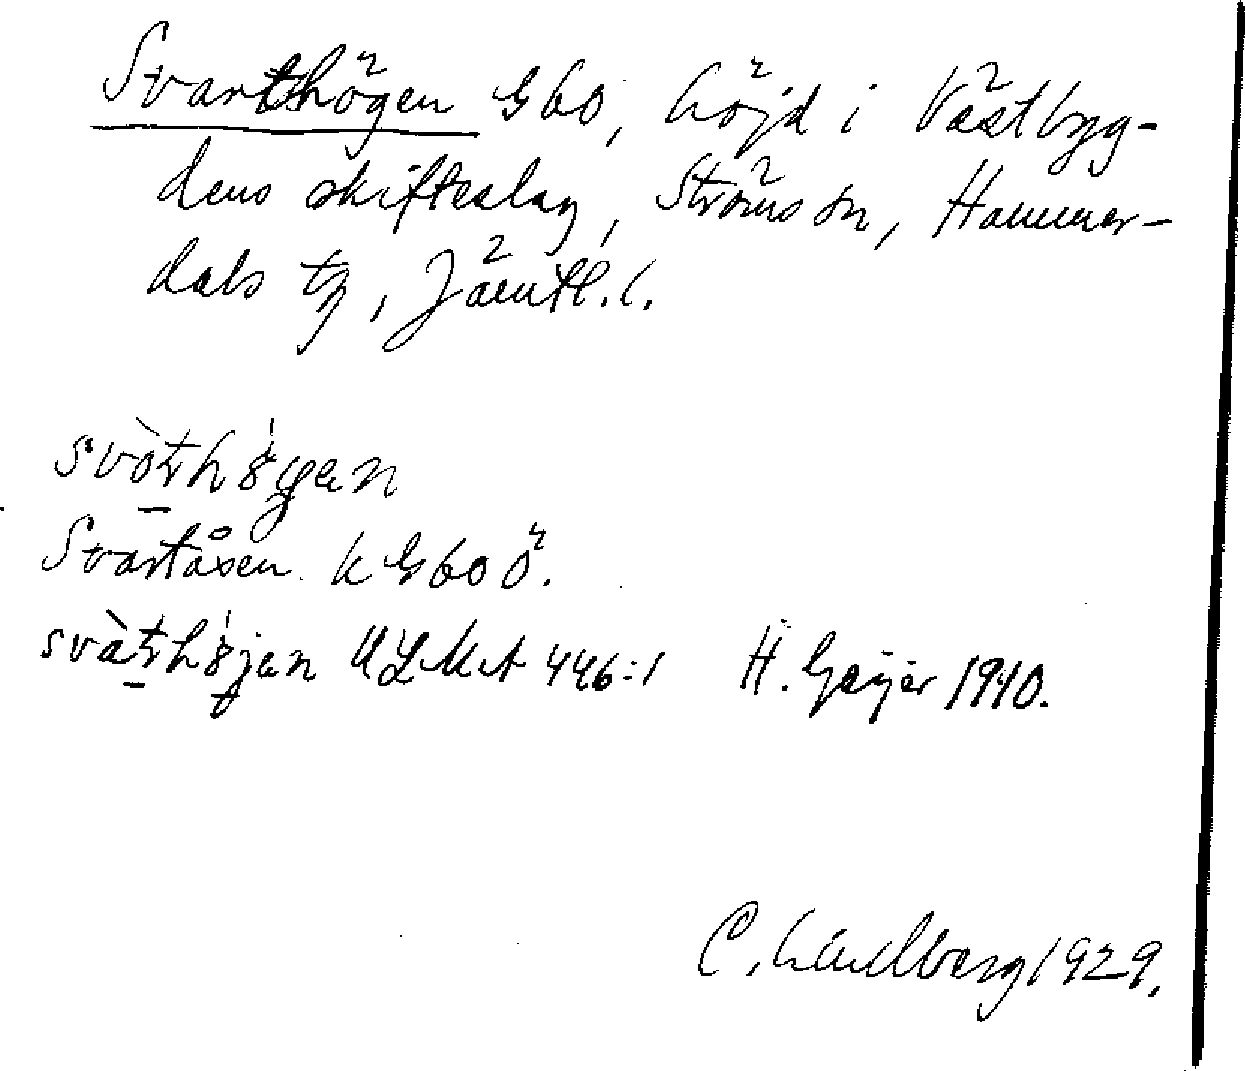 Svarthögen G60, höjd i Västbyg-
dens skifteslag, Ströms sn, Hammer-
dals tg, Jämtl. l.
svàthögen
Svartåsen k G60 Ö.
svàthöjen ULMA 446:1 H. Geijer 1940.
C. Lindberg 1929.